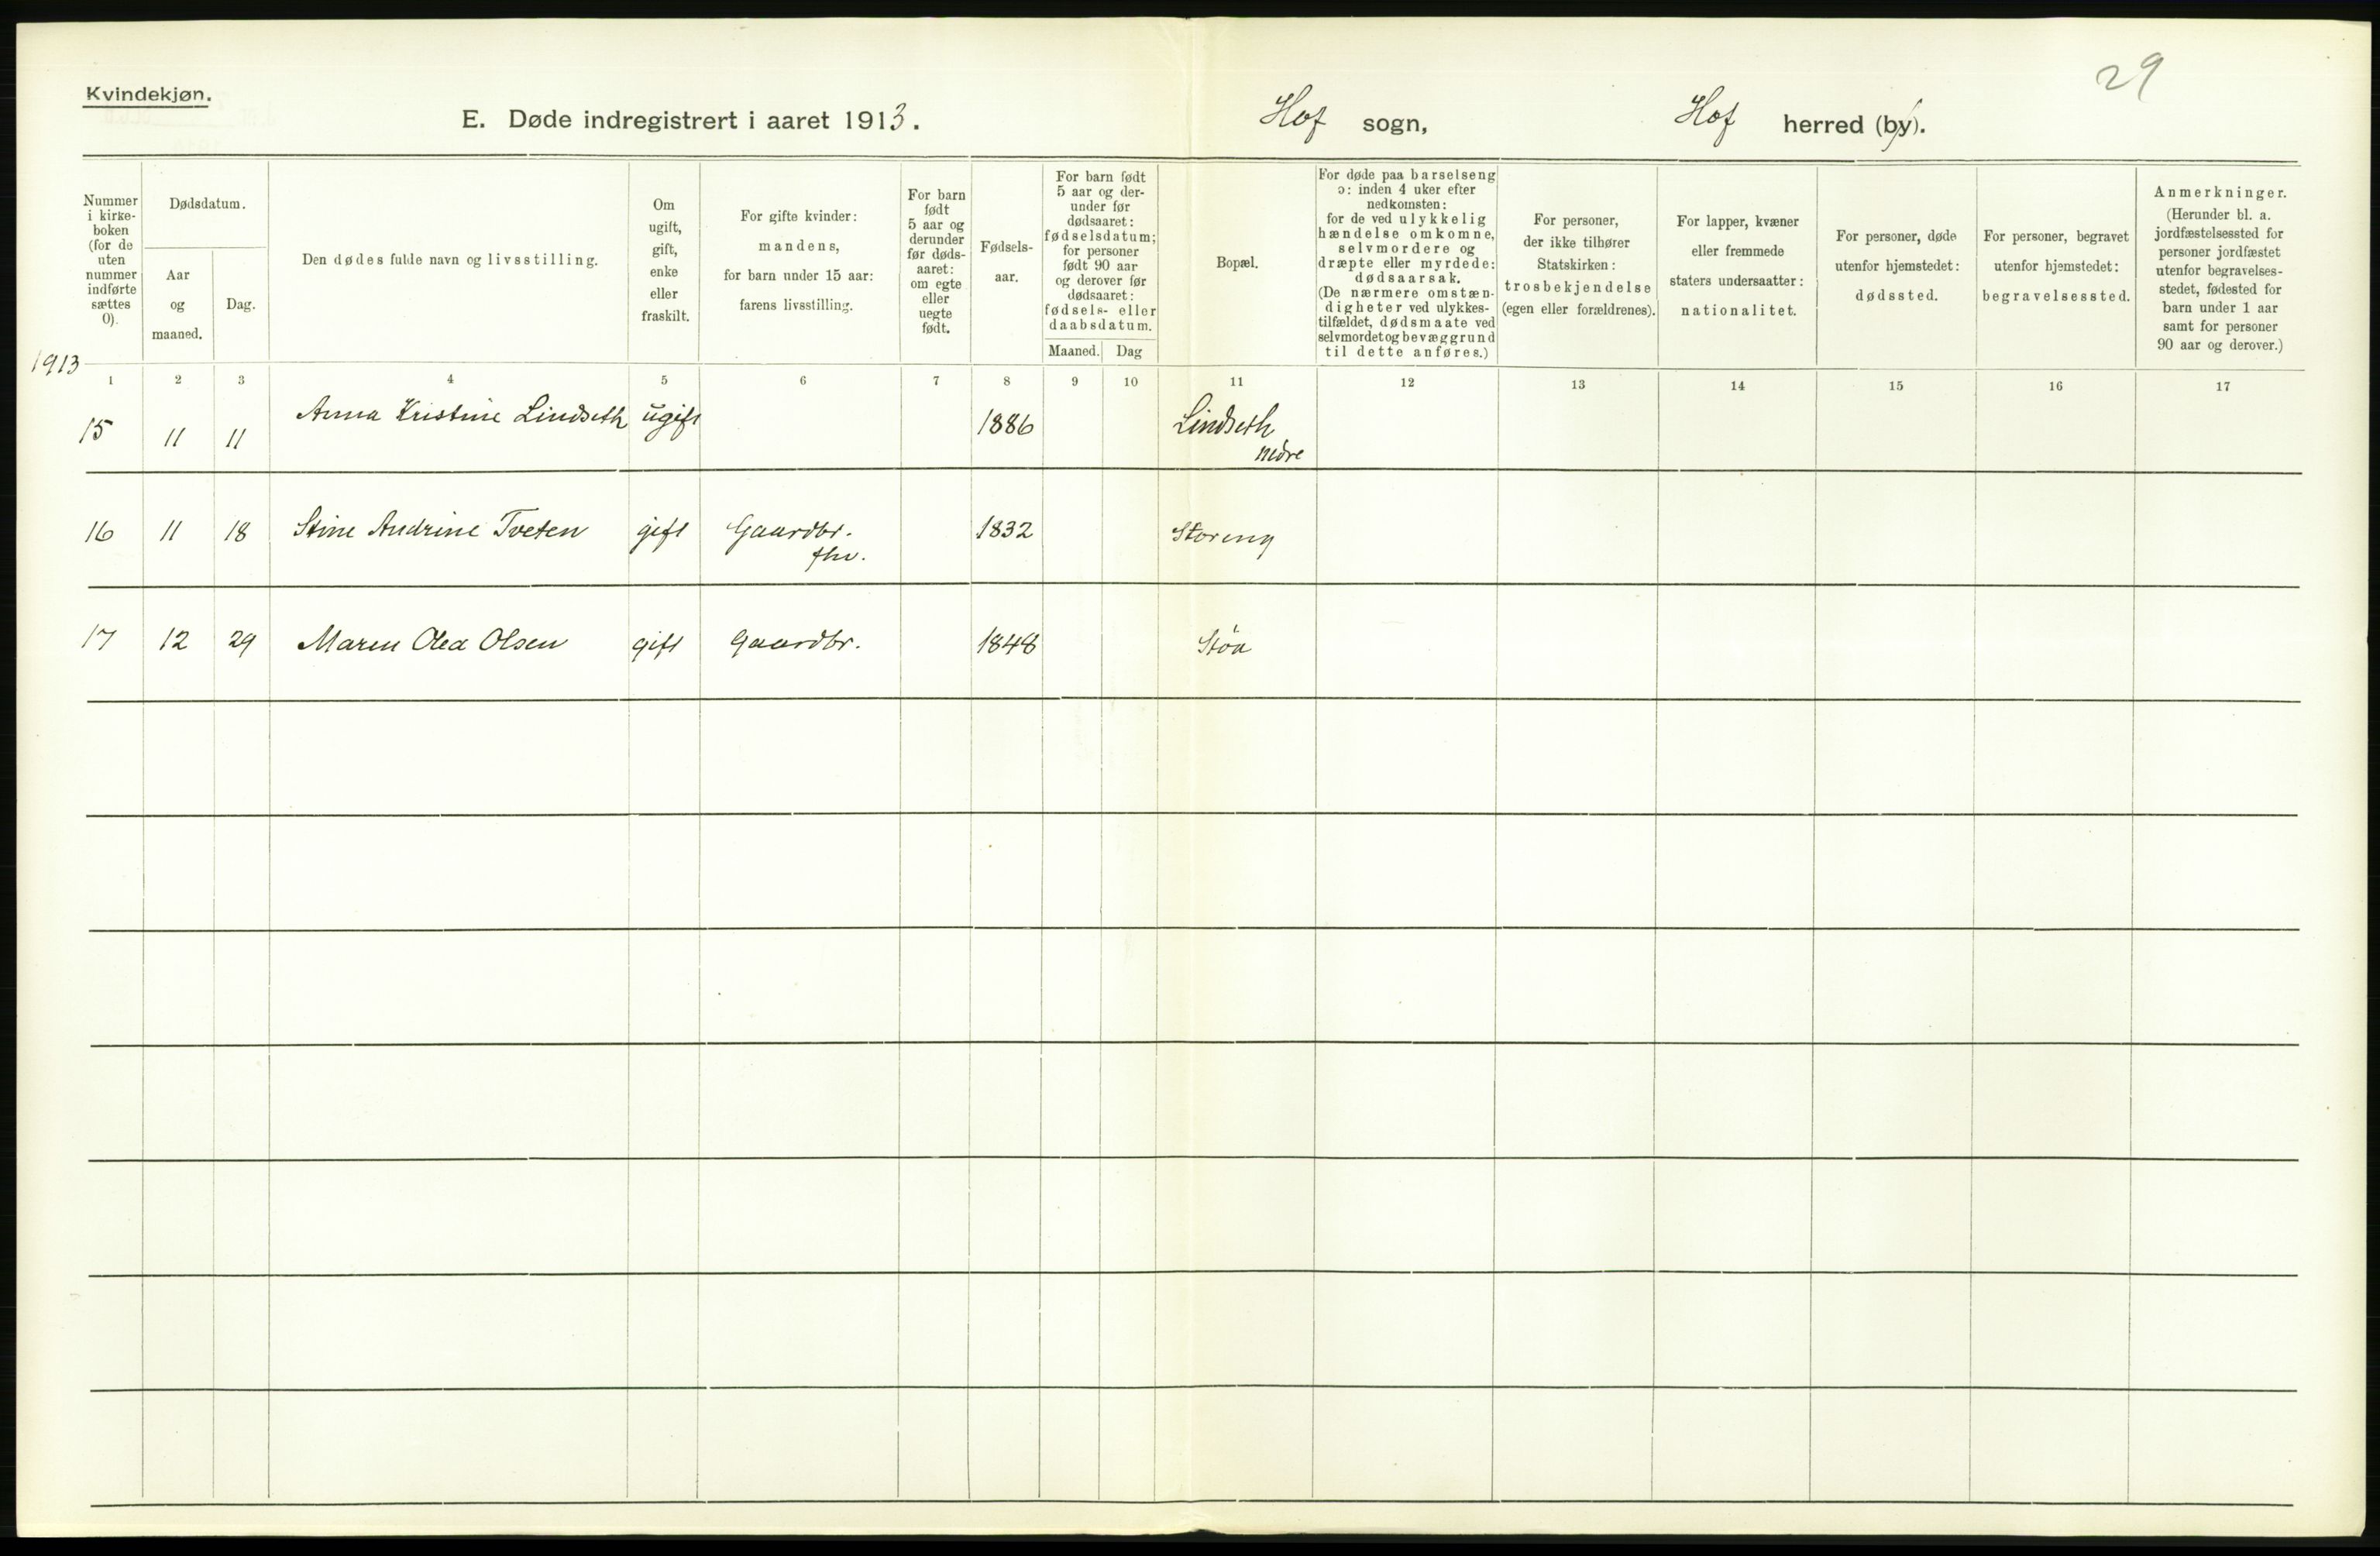 29
Kvindekjøn.
E. Døde indregistrert i aaret 1913. Hof sogn, Hof herred (by).
Nummer
i kirke-
boken
(for de
uten
nummer
indførte
sættes
0).
Dødsdatum.
Aar
og
maaned.
Dag.
Den dødes fulde navn og livsstilling.
Om
ugift,
gift,
enke
eller
fraskilt.
For gifte kvinder:
mandens,
for barn under 15 aar:
farens livsstilling.
For barn
født
5 aar og
derunder
før døds-
aaret:
om egte
eller
uegte
født.
Fødsels-
aar.
For barn født
5 aar og der-
under før
dødsaaret:
fødselsdatum;
for personer
født 90 aar
og derover før
dødsaaret:
fødsels- eller
daabsdatum.
Maaned. Dag
Bopæl.
For døde paa barselseng
ɔ: inden 4 uker efter
nedkomsten:
for de ved ulykkelig
hændelse omkomne,
selvmordere og
dræpte eller myrdede:
dødsaarsak.
(De nærmere omstæn-
digheter ved ulykkes-
tilfældet, dødsmaate ved
selvmordet og bevæggrund
til dette anføres.)
For personer,
der ikke tilhører
Statskirken:
trosbekjendelse
(egen eller forældrenes).
For lapper, kvæner
eller fremmede
staters undersaatter:
nationalitet.
For personer, døde
utenfor hjemstedet:
dødssted.
For personer, begravet
utenfor hjemstedet:
begravelsessted.
Anmerkninger.
(Herunder bl. a.
jordfæstelsessted for
personer jordfæstet
utenfor begravelses-
stedet, fødested for
barn under 1 aar
samt for personer
90 aar og derover.)
1913
1 2 3 4 5 6 7 8 9 10 11 12 13 14 15 16 17
15 11 11 Anna Kristine Lindseth ugift 1886 Lindseth
nedre
16 11 18 Stine Andrine Tveten gift Gaardbr. 1832 Storeng
fhv.
17 12 29 Maren Olea Olsen gift Gaardbr. 1848 Støa